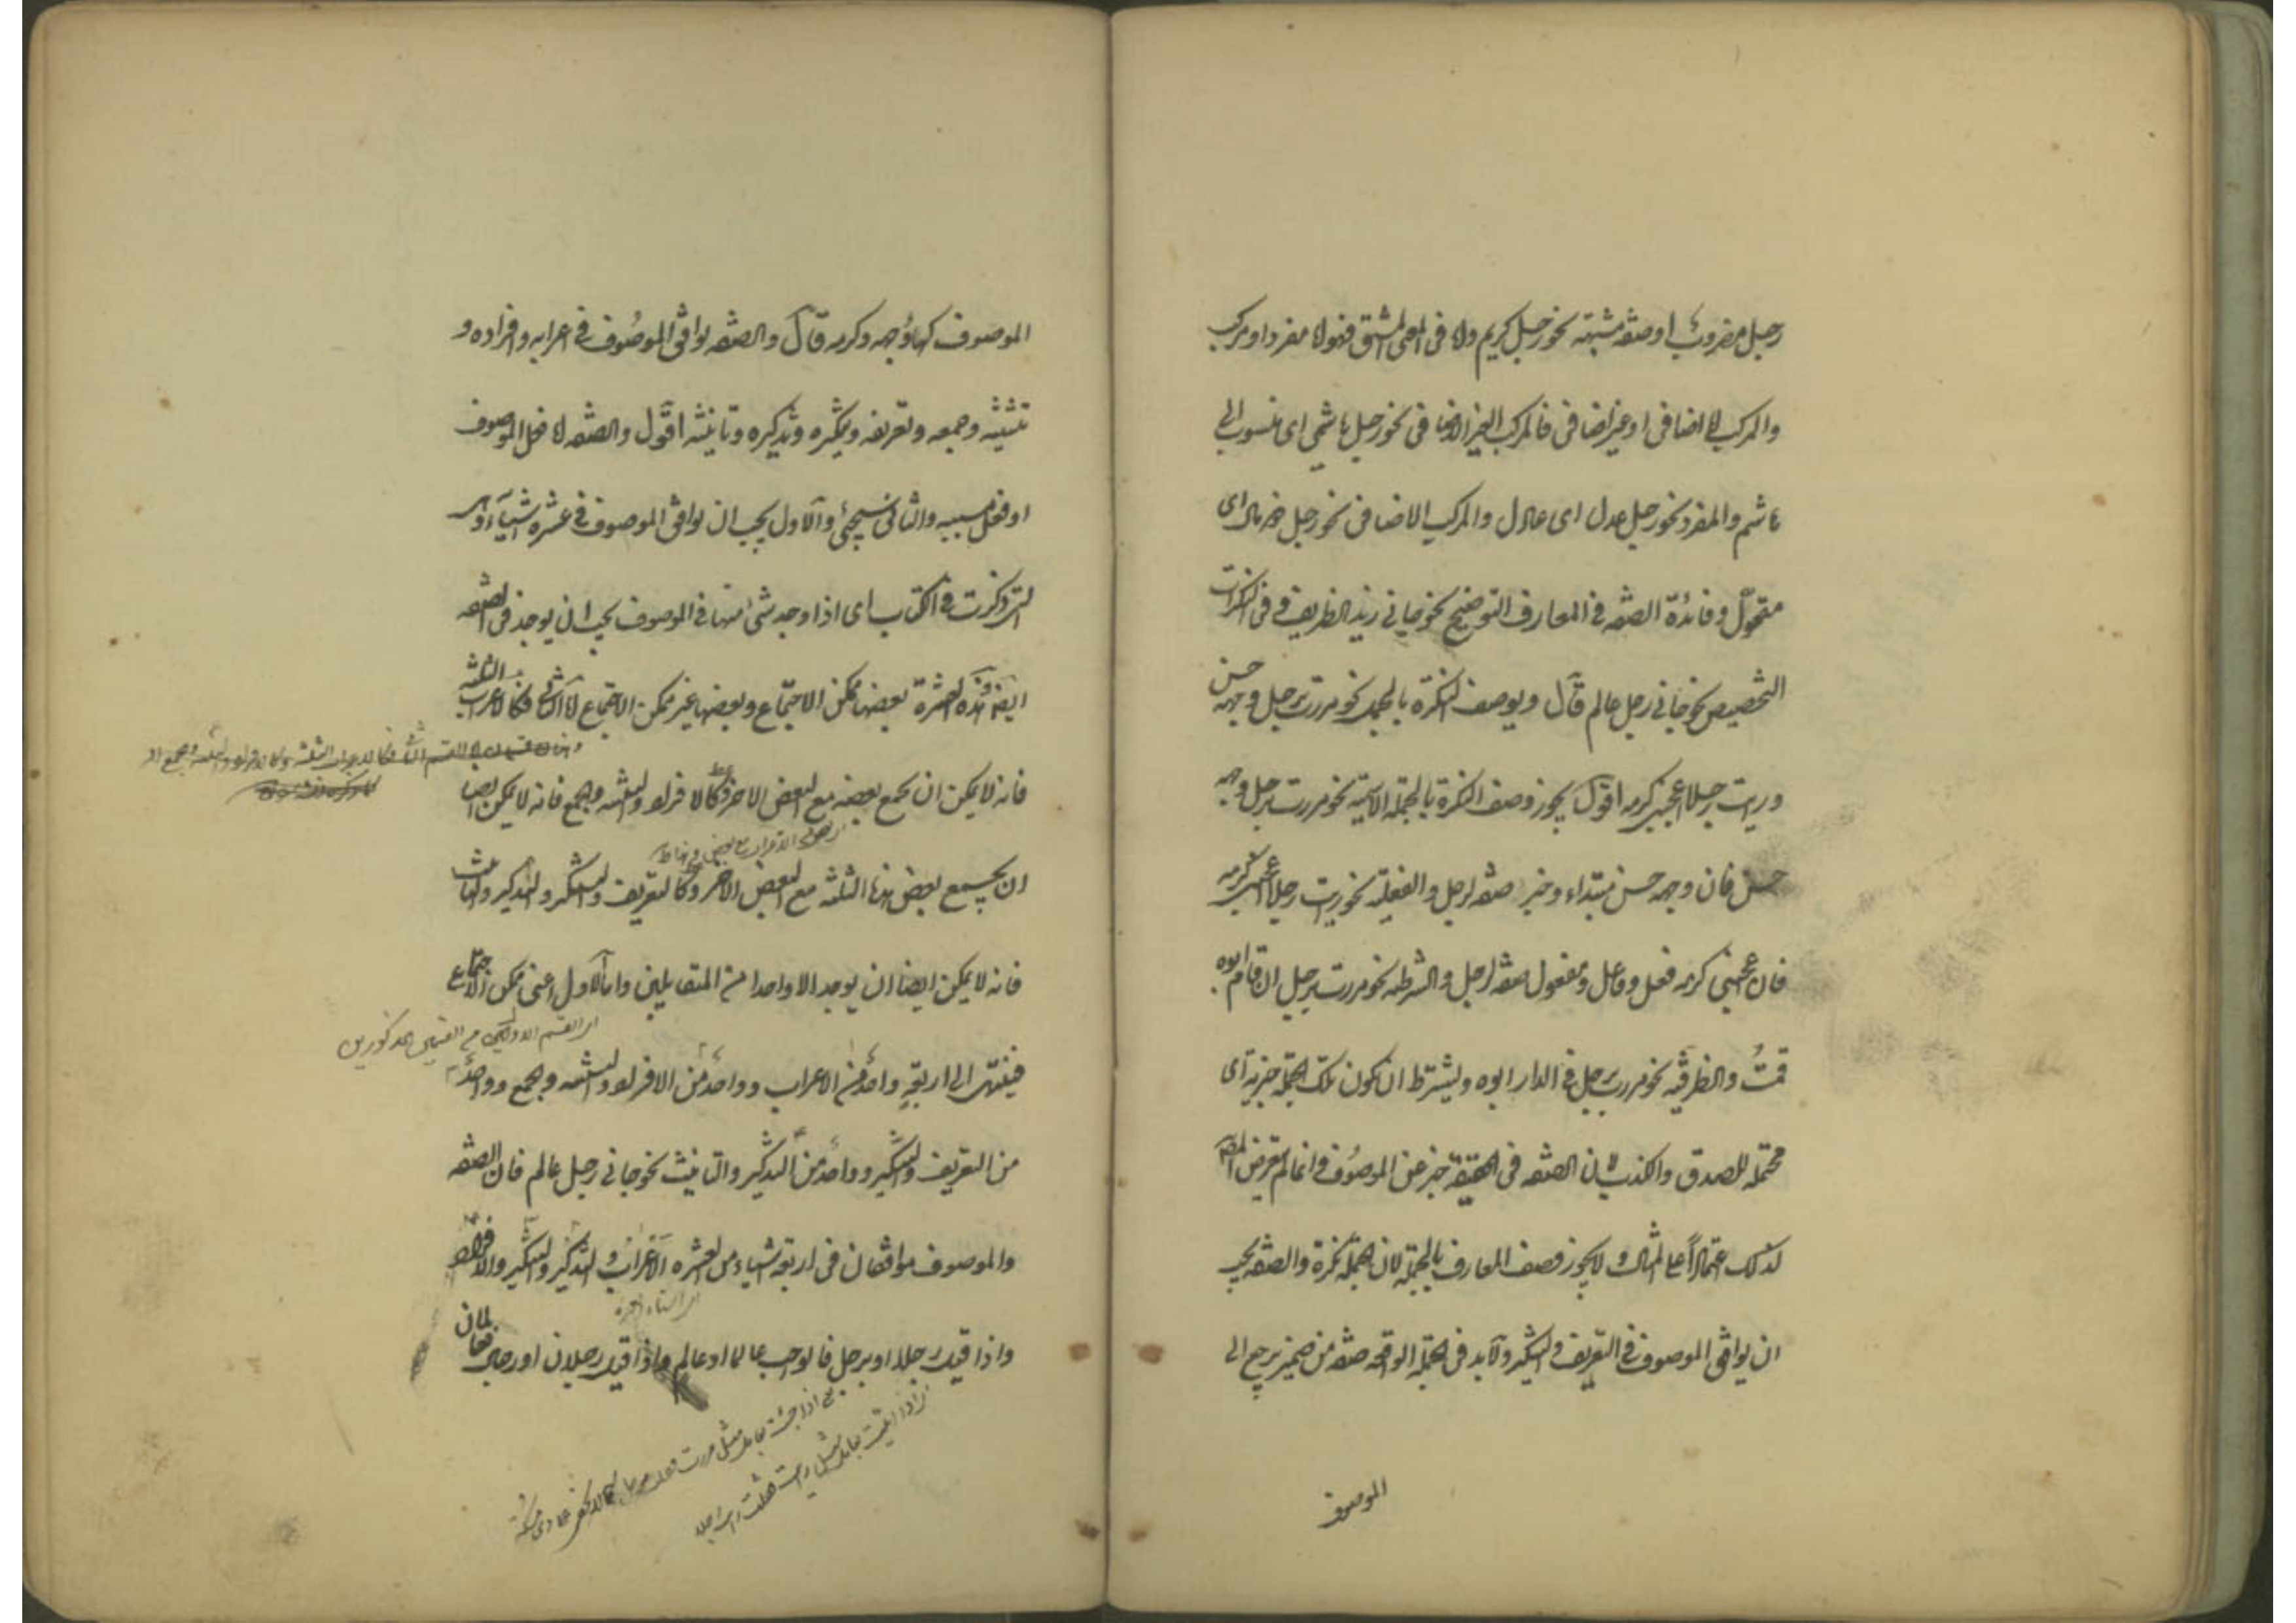 رجل مضروب او صفة مشبهة نحو رجل كريم وما فى معنى المشتق فهو اما مفرد او مركب
والمركب اما اضافى او غير اضافى فالمركب الغير الاضافى نحو رجل هاشمى اى منسوب الى
هاشم والمفرد نحو رجل عدل اى عادل والمركب الاضافى نحو رجل ذو مال اى
متموّل وفائدة الصفة فى المعارف التوضيح نحو جاءنى زيد الظريف وفى النكرات
التخصيص نحو جاءنى رجل عالم قال ويوصف النكرة بالجمل نحو مررت برجل وجهه حسن
ورايت رجلا اعجبنى كرمه اقول يجوز وصف النكرة بالجملة الاسمية نحو مررت برجل وجهه
حسن فان وجهه حسن مبتداء وخبر صفة لرجل والفعلية نحو رايت رجلا اعجبنى كرمه
فان اعجبنى كرمه فعل وفاعل ومفعول صفة لرجل والشرطية نحو مررت برجل ان قام ابوه
قمتُ والظرفية نحو مررت برجل فى الدار ابوه ويشترط ان تكون تلك الجملة خبرية اى
محتملة للصدق والكذب لان الصفة فى الحقيقة خبر عن الموصوف وانما لم يتعرض المص
لذلك اعتمادًا على المثال ولا يجوز وصف المعارف بالجملة لان الجملة نكرة والصفة يجب
ان يوافق الموصوف فى التعريف والتنكير ولابد فى الجملة الواقعة صفة من ضمير يرجع الى
الموصوف
الموصوف كهاء وجهه وكرمه قال والصفة يوافق الموصوف فى اعرابه وافراده و
تثنيته وجمعه وتعريفه وتنكيره وتذكيره وتانيثه اقول والصفة اما فعل الموصوف
او فعل مسببه والثانى سيجئ والاول يجب ان يوافق الموصوف فى عشرة اشياء وهى
التى ذكرت فى الكتاب اى اذا وجد شئ منها فى الموصوف يجب ان يوجد فى الصفة
ايضا وهذه العشرة بعضها ممكن الاجتماع وبعضها غير ممكن الاجتماع اما الثانى فكالاعراب الثلثة
فانه لا يمكن ان يجمع بعضه مع البعض الاخر وكالافراد والتثنية والجمع فانه لا يمكن ايضا
ان يجتمع بعض هذا الثلثة مع البعض الاخر وكالتعريف والتنكير والتذكير والتانيث
فانه لا يمكن ايضا ان يوجد الا واحدا من المتقابلين واما الاول اعنى ممكن الاجتماع
فينتهى الى اربعة واحد من الاعراب وواحد من الافراد والتثنية والجمع وواحد
من التعريف والتنكير وواحد من التذكير والتانيث نحو جاءنى رجل عالم فان الصفة
والموصوف موافقان فى اربعة اشياء من العشرة الاعراب والتذكير والتنكير والافراد
واذا قيل رجلا او برجل فالواجب عالما او عالم واذا قيل رجلان او رجلين فعالمان